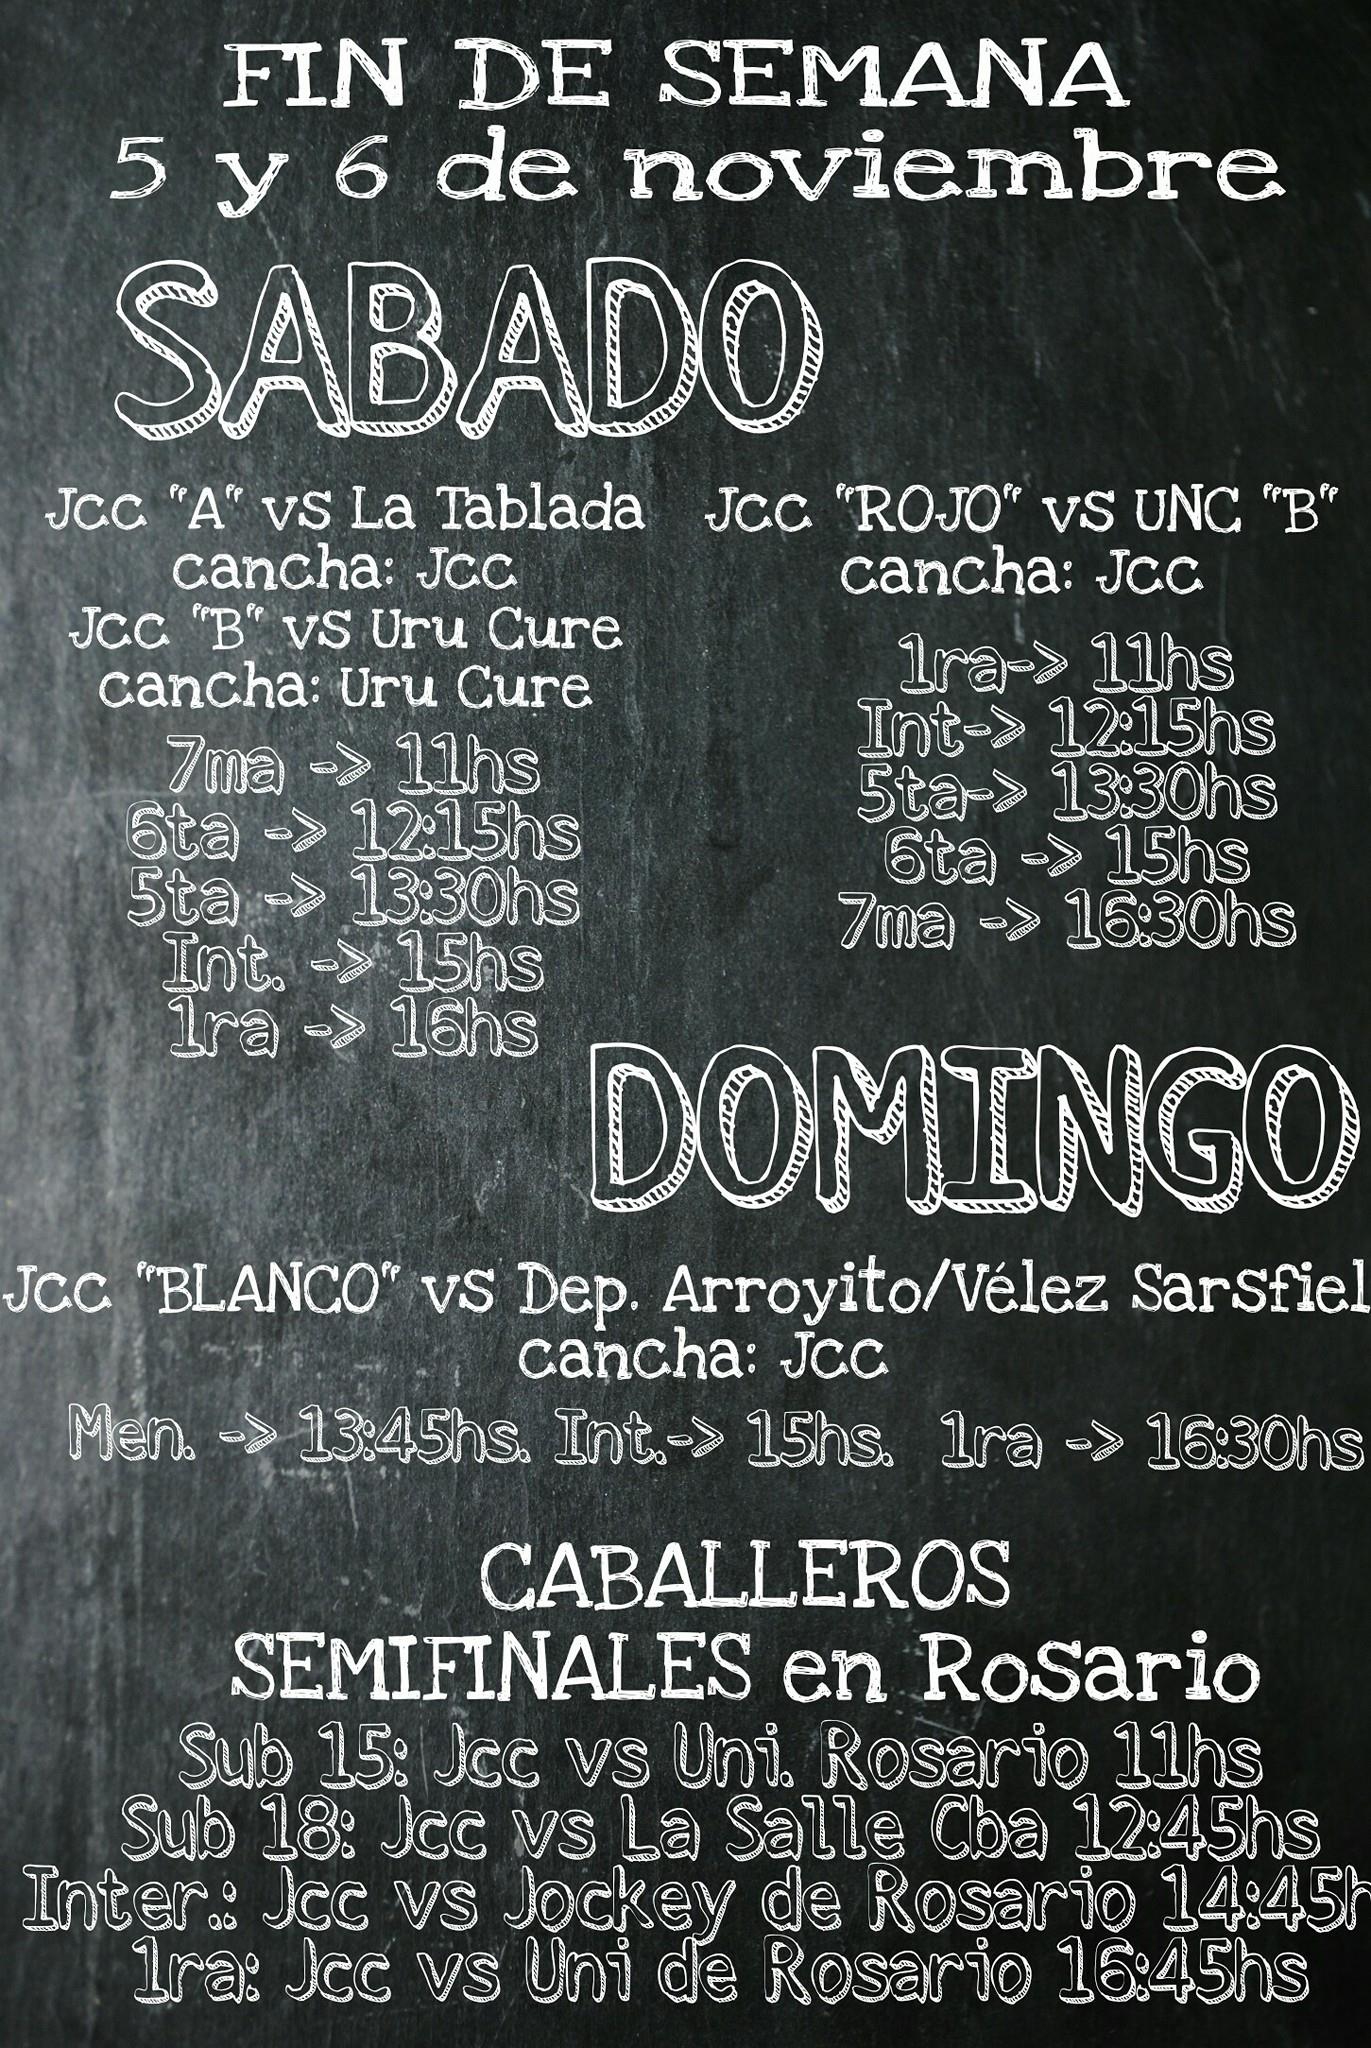 FIN DE SEMANA
5 y 6 de noviembre
SABADO
Jcc "A" vs La Tablada
cancha: Jcc
Jcc "B" vs Uru Cure
cancha: Uru Cure
7ma -> 11hs
6ta -> 12:15hs
5ta -> 13:30hs
Int. -> 15hs
1ra -> 16hs
Jcc "ROJO" vs UNC "B"
cancha: Jcc
1ra-> 11hs
Int-> 12:15hs
5ta-> 13:30hs
6ta -> 15hs
7ma -> 16:30hs
DOMINGO
Jcc "BLANCO" vs Dep. Arroyito/Vélez Sarsfiel
cancha: Jcc
Men. -> 13:45hs. Int.-> 15hs. 1ra -> 16:30hs
CABALLEROS
SEMIFINALES en Rosario
Sub 15: Jcc vs Uni. Rosario 11hs
Sub 18: Jcc vs La Salle Cba 12:45hs
Inter.: Jcc vs Jockey de Rosario 14:45h
1ra: Jcc vs Uni de Rosario 16:45hs